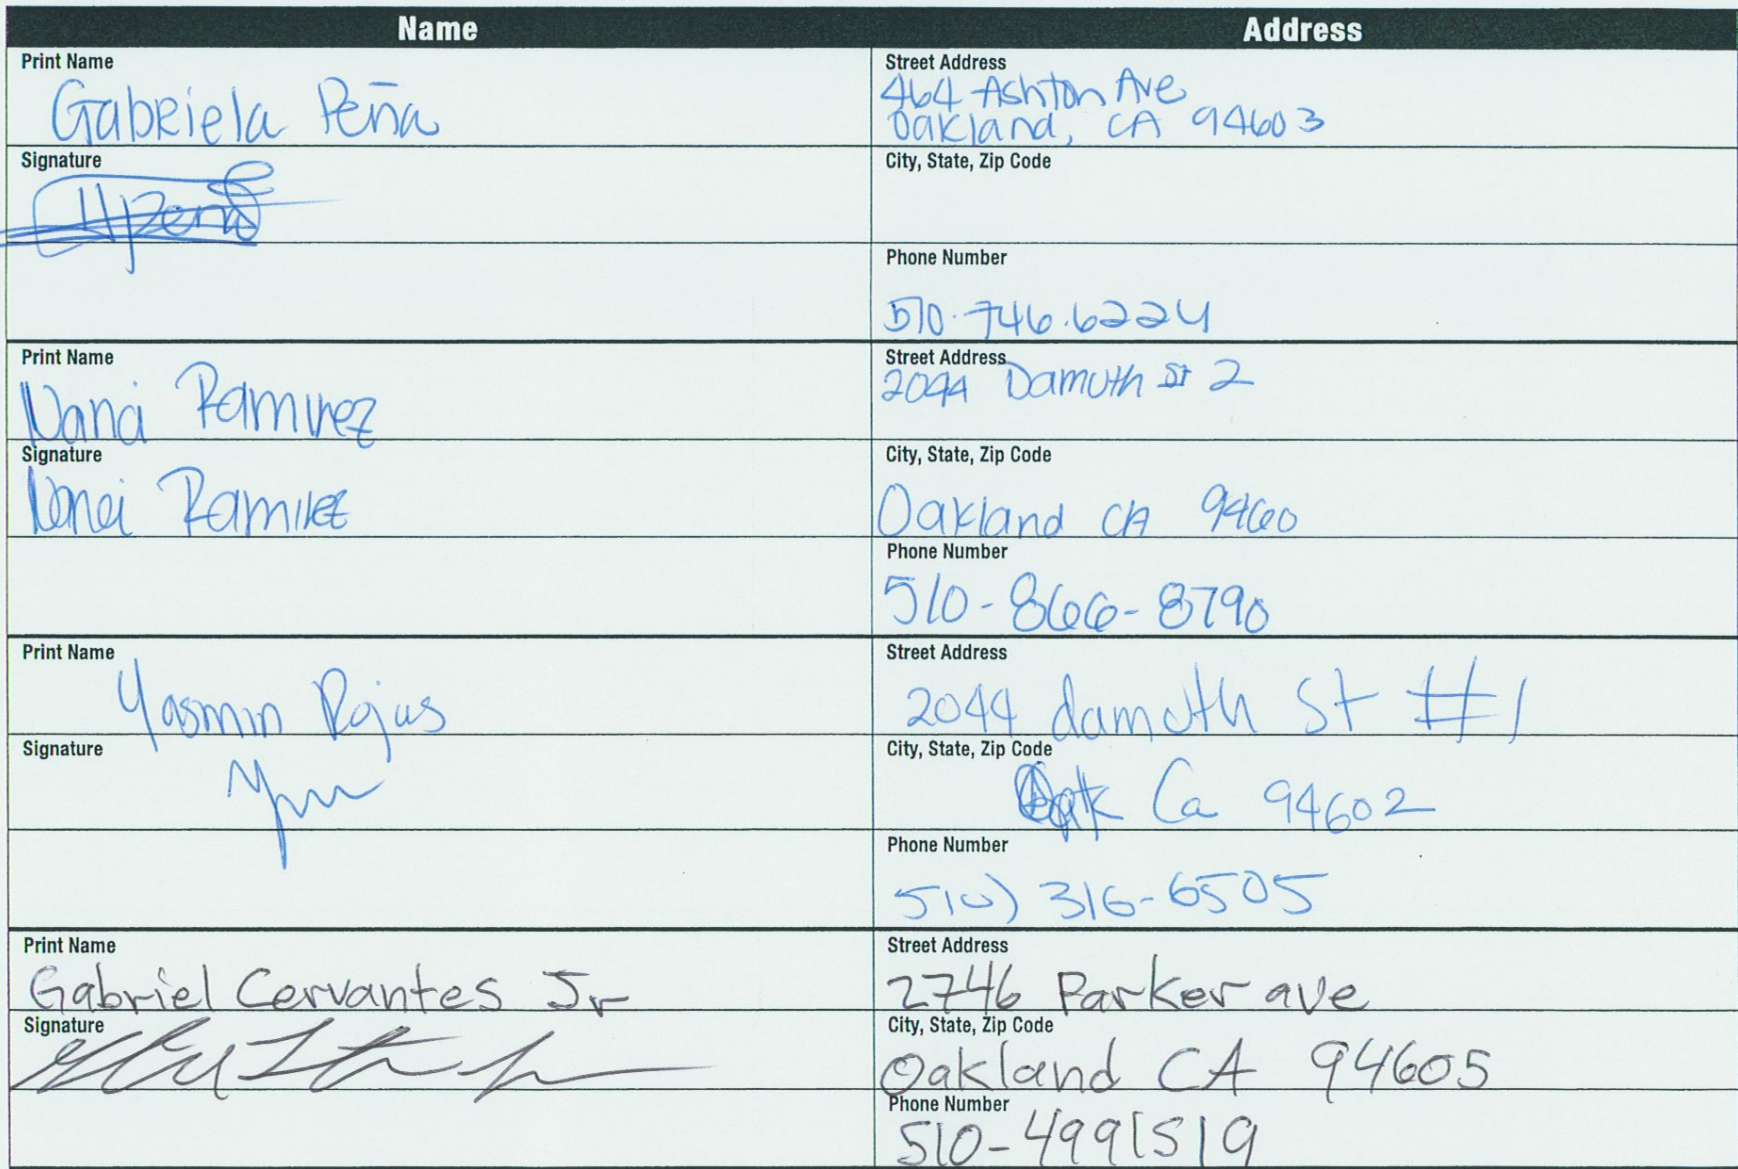 Name
Address
Print Name
Gabriela Peña
Street Address
464 Ashton Ave
Oakland, CA 94603
Signature
City, State, Zip Code
Phone Number
510.746.6224
Print Name
Nanci Ramirez
Street Address
2044 Damuth St 2
Signature
Nanci Ramirez
City, State, Zip Code
Oakland CA 9460
Phone Number
510-866-8790
Print Name
Yasmin Rojas
Street Address
2044 damuth St #1
Signature
City, State, Zip Code
Oak Ca 94602
Phone Number
510) 316-6505
Print Name
Gabriel Cervantes Jr
Street Address
2746 Parker ave
Signature
City, State, Zip Code
Oakland CA 94605
Phone Number
510-4991519